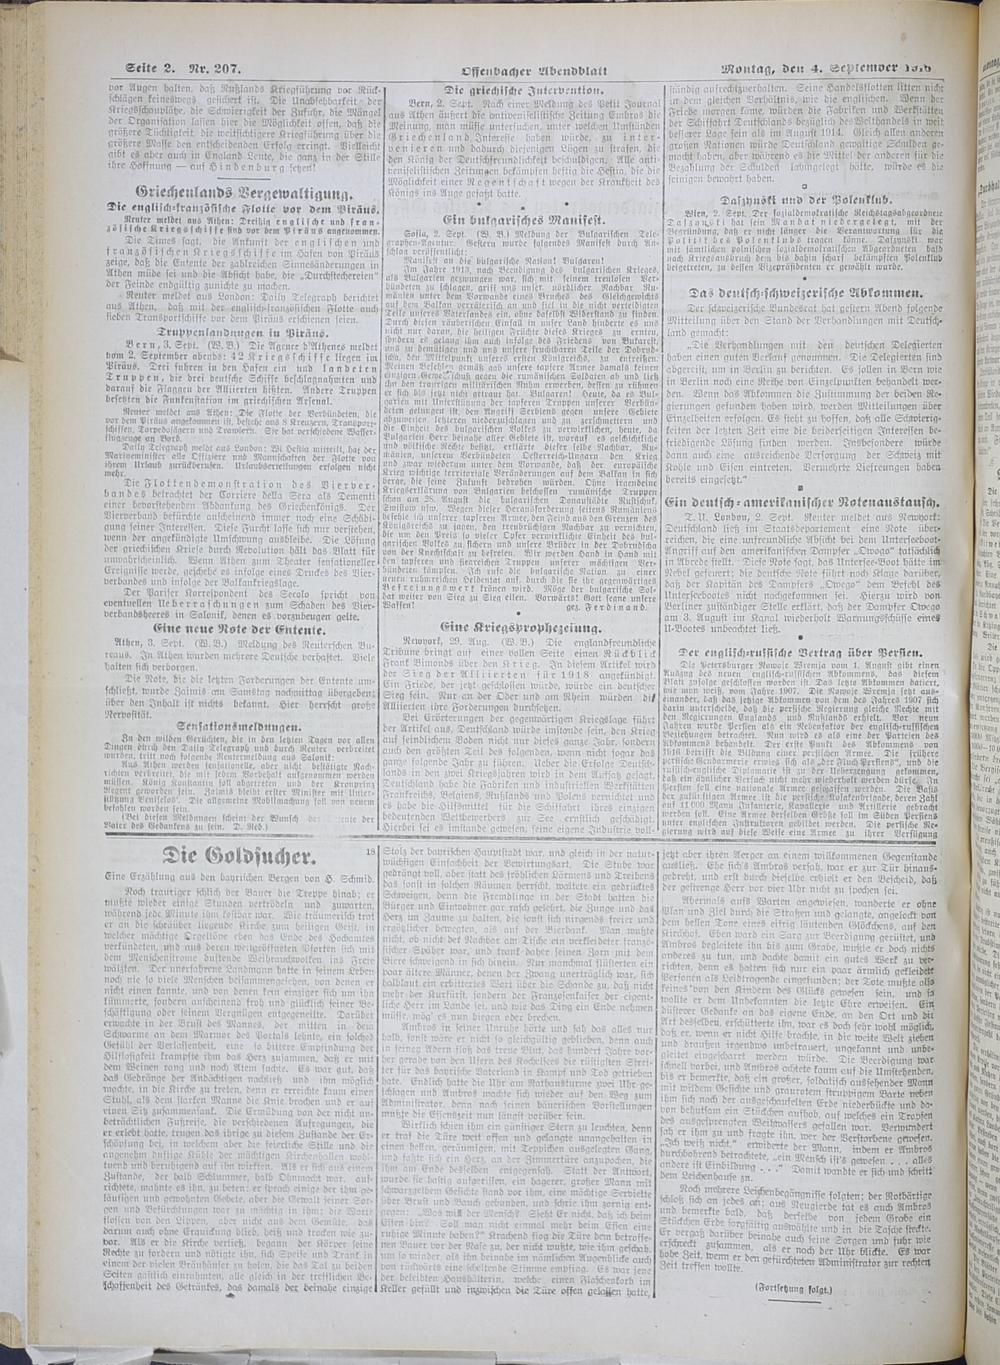 Seite 2. Nr. 207.
Offenbacher Abendblatt
Montag, den 4. September
vor Augen halten, daß Rußlands Kriegführung vor Rück-
schlägen keineswegs gesichert ist. Die Unabsehbarkeit der
Kriegsschauplätze, die Schwierigkeit der Zufuhr, die Mängel
der Organisation lassen hier die Möglichkeit offen, daß die
größere Tüchtigkeit, die weitsichtigere Kriegführung über die
größere Masse den entscheidenden Erfolg erringt. Vielleicht
gibt es aber auch in England Leute, die ganz in der Stille
ihre Hoffnung — auf Hindenburg setzen!
Griechenlands Vergewaltigung.
Die englisch-französische Flotte vor dem Piräus.
Reuter meldet aus Athen: Dreißig englische und fran-
zösische Kriegsschiffe sind vor dem Piräus angenommen.
Die Times sagt, die Ankunft der englischen und
französischen Kriegsschiffe im Hafen von Piräus
zeige, daß die Entente der zahlreichen Sinnesänderungen in
Athen müde sei und die Absicht habe, die „Durchstechereien"
der Feinde endgültig zunichte zu machen.
Reuter meldet aus London: Daily Telegraph berichtet
aus Athen, daß mit der englisch-französischen Flotte auch
sieben Transportschiffe vor dem Piräus erschienen seien.
Truppenlandungen in Piräus.
Bern, 3. Sept. (W. B.) Die Agence d'Athenes meldet
vom 2. September abends: 42 Kriegsschiffe liegen im
Piräus. Drei fuhren in den Hafen ein und landeten
Truppen, die drei deutsche Schiffe beschlagnahmten und
darauf die Flaggen der Alliierten hißten. Andere Truppen
besetzten die Funkenstation im griechischen Arsenal.
Reuter meldet aus Athen: Die Flotte der Verbündeten, die
vor dem Piräus angekommen ist, besteht aus 8 Kreuzern, Transport-
schiffen, Torpedojägern und Trawlern. Sie hat verschiedene Wasser-
flugzeuge an Bord.
Daily Telegraph meldet aus London: Wi Hestia mitteilt, hat der
Marineminister alle Offiziere und Mannschaften der Flotte von
ihrem Urlaub zurückberufen. Urlaubserteilungen erfolgen nicht
mehr.
Die Flottendemonstration des Vierver-
bandes betrachtet der Corriere della Sera als Dementi
einer bevorstehenden Abdankung des Griechenkönigs. Der
Vierverband befürchte anscheinend immer noch eine Schädi-
gung seiner Interessen. Diese Furcht lasse sich nur verstehen,
wenn der angekündigte Umschwung ausbleibe. Die Lösung
der griechischen Krise durch Revolution hält das Blatt für
unwahrscheinlich. Wenn Athen zum Theater sensationeller
Ereignisse werde, geschehe es infolge eines Druckes des Vier-
verbandes und infolge der Balkankriegslage.
Der Pariser Korrespondent des Secolo spricht von
eventuellen Ueberraschungen zum Schaden des Vier-
verbandsheeres in Saloniki, denen es vorzubeugen gelte.
Eine neue Note der Entente.
Athen, 3. Sept. (W. B.) Meldung des Reuterschen Bu-
reaus. In Athen wurden mehrere Deutsche verhaftet. Viele
halten sich verborgen.
Die Note, die die letzten Forderungen der Entente um-
schließt, wurde Zaimis am Samstag nachmittag übergeben;
über den Inhalt ist nichts bekannt. Hier herrscht große
Nervosität.
Sensationsmeldungen.
Zu den wilden Gerüchten, die in den letzten Tagen vor allen
Dingen durch den Daily Telegraph und durch Reuter verbreitet
wurden, tritt noch folgende Reutermeldung aus Saloniki:
Aus Athen werden sensationelle, aber nicht bestätigte Nach-
richten verbreitet, die mit jedem Vorbehalt aufgenommen werden
müssen. König Konstantin soll abgetreten und der Kronprinz
Regent geworden sein. Zaimis bleibt erster Minister mit Unter-
stützung Venizelos'. Die allgemeine Mobilmachung soll von neuem
befohlen worden sein.
(Bei diesen Meldungen scheint der Wunsch der Entente der
Vater des Gedankens zu sein. D. Red.)
Die griechische Intervention.
Bern, 2. Sept. Nach einer Meldung des Petit Journal
aus Athen äußert die antivenizelistische Zeitung Embros die
Meinung, man müsse untersuchen, unter welchen Umständen
Griechenland Interesse haben würde, zu inter-
venieren und dadurch diejenigen Lügen zu strafen, die
den König der Deutschfreundlichkeit beschuldigen. Alle anti-
venizelistischen Zeitungen bekämpfen heftig die Hestia, die die
Möglichkeit einer Regentschaft wegen der Krankheit des
Königs ins Auge gefaßt hatte.
Ein bulgarisches Manifest.
Sofia, 2. Sept. (W. B.) Meldung der Bulgarischen Tele-
graphen-Agentur. Gestern wurde folgendes Manifest durch An-
schlag veröffentlicht:
Manifest an die bulgarische Nation! Bulgaren!
Im Jahre 1913, nach Beendigung des bulgarischen Krieges,
als Bulgarien gezwungen war, sich mit seinem treulosen Ver-
bündeten zu schlagen, griff uns unser nördlicher Nachbar Ru-
mänien unter dem Vorwande eines Bruches des Gleichgewichts
auf dem Balkan verräterisch an und fiel in die nicht verteidigten
Teile unseres Vaterlandes ein, ohne daselbst Widerstand zu finden.
Durch diesen räuberischen Einfall in unser Land hinderte es uns
nicht nur daran, die heiligen Früchte dieses Krieges zu ernten,
sondern es gelang ihm auch infolge des Friedens von Bukarest,
uns zu demütigen und uns unsere fruchtbaren Teile der Dobrud-
scha, den Mittelpunkt unseres ersten Königreichs, zu entreißen.
Meinen Befehlen gemäß gab unsere tapfere Armee damals keinen
einzigen Gewehrschuß gegen die rumänischen Soldaten ab und ließ
ihn den traurigen militärischen Ruhm erwerben, dessen zu rühmen
er sich bis jetzt nicht getraut hat. Bulgaren! Heute, da es Bul-
garien mit Unterstützung der tapferen Truppen unserer Verbün-
deten gelungen ist, den Angriff Serbiens gegen unsere Gebiete
abzuweisen, letzteren niederzuschlagen und zu zerschmettern und
die Einheit des bulgarischen Volkes zu verwirklichen, heute, da
Bulgarien Herr beinahe aller Gebiete ist, worauf es geschichtliche
und völkische Rechte besitzt, erklärte dieser selbe Nachbar, Ru-
mänien, unserem Verbündeten Oesterreich-Ungarn den Krieg
und zwar wiederum unter dem Vorwande, daß der europäische
Krieg wichtige territoriale Veränderungen auf dem Balkan in sich
berge, die seine Zukunft bedrohen würden. Ohne irgendeine
Kriegserklärung von Bulgarien beschossen rumänische Truppen
schon am 28. August die bulgarischen Donaustädte Rustschuk,
Swistow usw. Wegen dieser Herausforderung seitens Rumäniens
befehle ich unserer tapferen Armee, den Feind aus den Grenzen des
Königreichs zu jagen, den treubrüchigen Nachbar zu vernichten,
die um den Preis so vieler Opfer verwirklichte Einheit des bul-
garischen Volkes zu sichern und unsere Brüder in der Dobrudscha
von der Knechtschaft zu befreien. Wir werden Hand in Hand mit
den tapferen und siegreichen Truppen unserer mächtigen Ver-
bündeten kämpfen. Ich rufe die bulgarische Nation zu einer
neuen ruhmreichen Heldentat auf, durch die sie ihr gegenwärtiges
Befreiungswerk krönen wird. Möge der bulgarische Sol-
dat weiter von Sieg zu Sieg eilen. Vorwärts! Gott segne unsere
Waffen! gez. Ferdinand.
Eine Kriegsprophezeiung.
Newyork, 29. Aug. (W. B.) Die englandfreundliche
Tribune bringt auf einer vollen Seite einen Rückblick
Frank Simonds über den Krieg. In diesem Artikel wird
der Sieg der Alliierten für 1918 angekündigt.
Ein Friede, der jetzt geschlossen würde, würde ein deutscher
Sieg sein. Nur an der Oder und am Rhein würden die
Alliierten ihre Forderungen durchsetzen.
Bei Erörterungen der gegenwärtigen Kriegslage führt
der Artikel aus, Deutschland würde imstande sein, den Krieg
auf feindlichem Boden nicht nur dieses ganze Jahr, sondern
auch den größten Teil des folgenden, wenn nicht sogar das
ganze folgende Jahr zu führen. Ueber die Erfolge Deutsch-
lands in den zwei Kriegsjahren wird in dem Aufsatz gesagt,
Deutschland habe die Fabriken und industriellen Werkstätten
Frankreichs, Belgiens, Rußlands und Polens vernichtet und
es habe die Hilfsmittel für die Schiffahrt ihres einzigen
bedeutenden Wettbewerbers zur See ernstlich geschädigt.
Hierbei sei es imstande gewesen, seine eigene Industrie voll-
ständig aufrechtzuerhalten. Seine Handelsflotten litten nicht
in dem gleichen Verhältnis, wie die englischen. Wenn der
Friede morgen käme, würden die Fabriken und Werkstätten
der Schiffahrt Deutschlands bezüglich des Welthandels in weit
besserer Lage sein als im August 1914. Gleich allen anderen
großen Nationen würde Deutschland gewaltige Schulden ge-
macht haben, aber während es die Mittel der anderen für die
Bezahlung der Schulden lahmgelegt hätte, würde es die
seinigen bewahrt haben.
Daszynski und der Polenklub.
Wien, 2. Sept. Der sozialdemokratische Reichstagsabgeordnete
Daszynski hat sein Mandat niedergelegt, mit der
Begründung, daß er nicht länger die Verantwortung für die
Politik des Polenklubs tragen könne. Daszynski war
mit sämtlichen polnischen sozialdemokratischen Abgeordneten bald
nach Kriegsausbruch dem bis dahin scharf bekämpften Polenklub
beigetreten, zu dessen Vizepräsidenten er gewählt wurde.
Das deutsch-schweizerische Abkommen.
Der schweizerische Bundesrat hat gestern Abend folgende
Mitteilung über den Stand der Verhandlungen mit Deutsch-
land gemacht:
„Die Verhandlungen mit den deutschen Delegierten
haben einen guten Verlauf genommen. Die Delegierten sind
abgereist, um in Berlin zu berichten. Es sollen in Bern wie
in Berlin noch eine Reihe von Einzelpunkten behandelt wer-
den. Wenn das Abkommen die Zustimmung der beiden Re-
gierungen gefunden haben wird, werden Mitteilungen über
Einzelheiten erfolgen. Es steht zu hoffen, daß alle Schwierig-
keiten der letzten Zeit eine die beiderseitigen Interessen be-
friedigende Lösung finden werden. Insbesondere würde
dann auch eine ausreichende Versorgung der Schweiz mit
Kohle und Eisen eintreten. Vermehrte Lieferungen haben
bereits eingesetzt."
Ein deutsch-amerikanischer Notenaustausch.
T. U. London, 2. Sept. Reuter meldet aus Newyork:
Deutschland ließ im Staatsdepartement eine Note über-
reichen, die eine unfreundliche Absicht bei dem Unterseeboot-
Angriff auf den amerikanischen Dampfer „Owego" tatsächlich
in Abrede stellt. Diese Note sagt, das Untersee-Boot hätte im
Nebel gefeuert; die deutsche Note führt noch Klage darüber,
daß der Kapitän des Dampfers „Owego" dem Befehl des
Unterseebootes nicht nachgekommen sei. Hierzu wird von
Berliner zuständiger Stelle erklärt, daß der Dampfer Owego
am 3. August im Kanal wiederholt Warnungsschüsse eines
U-Bootes unbeachtet ließ.
Der englisch-russische Vertrag über Persien.
Die Petersburger Nowoje Wremja vom 1. August gibt einen
Auszug des neuen englisch-russischen Abkommens, das diesem
Blatt zufolge geschlossen worden ist. Das letzte Abkommen datiert,
wie man weiß, vom Jahre 1907. Die Nowoje Wremja setzt aus-
einander, daß das jetzige Abkommen von dem des Jahres 1907 sich
darin unterscheide, daß die persische Regierung gleiche Rechte mit
den Regierungen Englands und Rußlands erhielt. Vor neun
Jahren wurde Persien als ein Nebenfaktor der englisch-russischen
Beziehungen betrachtet. Nun wird es als eine der Parteien des
Abkommens behandelt. Der erste Punkt des Abkommens von
1916 betrifft die Bildung einer persischen Armee. Die frühere
persische Gendarmerie erwies sich als „der Fluch Persiens", und die
russisch-englische Diplomatie ist zu der Ueberzeugung gekommen,
daß ein ähnlicher Versuch nicht mehr wiederholt werden dürfe. In
Persien soll eine nationale Armee geschaffen werden. Die Basis
der zukünftigen Armee ist die persische Kosakenbrigade, deren Zahl
auf 11 000 Mann Infanterie, Kavallerie und Artillerie gebracht
werden soll. Eine Armee derselben Größe soll im Süden Persiens
unter englischen Instruktoren gebildet werden. Die persische Re-
gierung wird auf diese Weise eine Armee zu ihrer Verfügung
Die Goldsucher.
18
Eine Erzählung aus den bayrischen Bergen von H. Schmid.
Noch trauriger schlich der Bauer die Treppe hinab; er
mußte wieder einige Stunden vertrödeln und zuwarten,
während jede Minute ihm kostbar war. Wie träumerisch trat
er an die schräüber liegende Kirche zum heiligen Geist, in
welcher mächtige Orgeltöne eben das Ende des Hochamtes
verkündeten, und aus deren weitgeöffneten Pforten sich mit
dem Menschenstrome duftende Weihrauchwolken ins Freie
wälzten. Der unerfahrene Landmann hatte in seinem Leben
noch nie so viele Menschen beisammengesehen, von denen er
nicht einen kannte, und von denen kein einziger sich um ihn
kümmerte, sondern anscheinend froh und glücklich seiner Be-
schäftigung oder seinem Vergnügen entgegeneilte. Darüber
erwachte in der Brust des Mannes, der mitten in dem
Schwarme an dem Marmor des Portals lehnte, ein solches
Gefühl der Verlassenheit, eine so bittere Empfindung der
Hilflosigkeit krampfte ihm das Herz zusammen, daß er mit
dem Weinen rang und nach Atem suchte. Es war gut, daß
das Gedränge der Andächtigen nachließ und ihm möglich
machte, in die Kirche zu treten, denn er erreichte kaum einen
Stuhl, als dem starken Manne die Knie brachen und er auf
einen Sitz zusammensank. Die Ermüdung von der nicht un-
beträchtlichen Fußreise, die verschiedenen Aufregungen, die
er erlebt hatte, trugen das ihrige zu diesem Zustande der Er-
schöpfung bei, in welchem aber die feierliche Stille und die
angenehm duftige Kühle der mächtigen Kirchenhallen wohl-
tuend und beruhigend auf ihn wirkten. Als er sich aus einem
Zustande, der halb Schlummer, halb Ohnmacht war, auf-
richtete, mahnte es ihn, zu beten; er sprach einige der ihm ge-
läufigen und gewohnten Gebete, aber die Gewalt seiner Sor-
gen und Befürchtungen war zu mächtig in ihm; die Worte
flossen von den Lippen, aber nicht aus dem Gemüte, das
darum auch ohne Erquickung blieb, heiß und trocken wie zu-
vor. Als er die Kirche verließ, begann der Körper seine
Rechte zu fordern und nötigte ihn, sich Speise und Trank in
einem der vielen Bräuhäuser zu holen, die das Tal zu beiden
Seiten gastlich einrahmten, alle gleich in der trefflichen Be-
schaffenheit des Getränkes, das damals der beinahe einzige
Stolz der bayrischen Hauptstadt war, und gleich in der natur-
wüchsigen Einfachheit der Bewirtungsart. Die Stube war
gedrängt voll, aber statt des fröhlichen Lärmens und Treibens,
das sonst in solchen Räumen herrscht, waltete ein gedrücktes
Schweigen, denn die Fremdlinge in der Stadt hatten die
Bürger und Einwohner gar rasch gelehrt, die Zunge und das
Herz im Zaume zu halten, die sonst sich nirgends freier und
ergötzlicher bewegten, als auf der Bierbank. Man wußte
nicht, ob nicht der Nachbar am Tische ein verkleideter franzö-
sischer Späher war, und trank daher seinen Zorn mit dem
Biere schweigend in sich hinein. Nur manchmal flüsterten ein
paar ältere Männer, denen der Zwang unerträglich war, sich
halblaut ein erbittertes Wort über die Schande zu, daß nicht
mehr der Kurfürst, sondern der Franzosenkaiser der eigent-
liche Herr im Lande sei, und wie das Ding ein Ende nehmen
müsse, mög' es nun biegen oder brechen.
Ambros in seiner Unruhe hörte und sah das alles nur
halb, sonst wäre er nicht so gleichgültig geblieben, denn auch
in seinen Adern floß das treue Blut, das hundert Jahre vor-
her von den Ufern des Kochelsees die rüstigsten Strei-
ter für das bayrische Vaterland in Kampf und Tod getrieben
hatte. Endlich hatte die Uhr am Rathausturme zwei Uhr ge-
schlagen und Ambros machte sich wieder auf den Weg zum
Administrator, denn nach seinen bäuerischen Vorstellungen
mußte die Essenszeit nun längst vorüber sein.
Wirklich schien ihm ein günstiger Stern zu leuchten, denn
er traf die Türe weit offen und gelangte unangehalten in
einen hellen, geräumigen, mit Teppichen ausgelegten Gang,
und faßte sich ein Herz, an der Zimmertüre anzupochen, die
ihm am Ende desselben entgegensah. Statt der Antwort,
wurde sie hastig aufgerissen, ein hagerer, großer Mann mit
schwarzgelbem Gesichte stand vor ihm, eine mächtige Serviette
über Brust und Bauch gebunden, und schrie ihm zornig ent-
gegen: „Was will der Mensch? Sieht Er nicht, daß ich beim
Essen bin? Soll man nicht einmal mehr beim Essen eine
ruhige Minute haben?" Krachend flog die Türe dem betroffe-
nen Bauer vor der Nase zu, der nicht wußte, wie ihm geschah,
um so minder, als ihm beinahe im nämlichen Augenblicke auch
von rückwärts eine scheltende Stimme empfing. Es war jene
der beleibten Haushälterin, welche einen Flaschenkorb im
Keller gefüllt und inzwischen die Türe offen gelassen hatte,
jetzt aber ihren Aerger an einem willkommenen Gegenstande
ausließ. Ehe sich's Ambros versah, war er zur Tür hinaus-
gedreht, und erst durch dieselbe erhielt er den Bescheid, daß
der gestrenge Herr vor vier Uhr nicht zu sprechen sei.
Abermals aufs Warten angewiesen, wanderte er ohne
Plan und Ziel durch die Straßen und gelangte, angelockt von
dem hellen Tone eines eifrig läutenden Glöckchens, auf den
Kirchhof. Eben ward ein Sarg zur Beerdigung gerüstet, und
Ambros begleitete ihn bis zum Grabe, wußte er doch nichts
anderes zu tun, und dachte damit ein gutes Werk zu ver-
richten, denn es hatten sich nur ein paar ärmlich gekleidete
Personen als Leidtragende eingefunden; der Tote mußte also
keines von den Kindern des Glücks gewesen sein, und so
wollte er dem Unbekannten die letzte Ehre erweisen. Ein
düsterer Gedanke an das eigene Ende, an den Ort und die
Art desselben, erschütterte ihn, war es doch sehr wohl möglich,
daß er, wenn er nicht Hilfe brachte, in die weite Welt ziehen
und draußen irgendwo unbetrauert, ungekannt und unbe-
gleitet eingescharrt werden würde. Die Beerdigung war
schnell vorbei, und Ambros achtete kaum auf die Umstehenden,
bis er bemerkte, daß ein großer, soldatisch aussehender Mann
mit wildem Gesichte und graurotem struppigem Barte neben
ihm sich nach der ausgeschaufelten Erde niederbückte und da-
von behutsam ein Stückchen aufhob, auf welches ein Tropfen
des ausgesprengten Weihwassers gefallen war. Verwundert
sah er ihm zu und fragte ihn, wer der Verstorbene gewesen.
„Ich weiß nicht," erwiderte der Mann, indem er Ambros
durchbohrend betrachtete, „ein Mensch ist's gewesen . . . alles
andere ist Einbildung . . ." Damit wandte er sich und schritt
dem Leichenhause zu.
Noch mehrere Leichenbegängnisse folgten; der Rotbärtige
schloß sich an jedes an; aus Neugierde tat es auch Ambros
und bemerkte bald, daß derselbe von jedem Grabe ein
Stückchen Erde sorgfältig auswählte und in die Tasche steckte.
Er vergaß darüber beinahe auch seine Sorgen und fuhr wie
erschreckt zusammen, als er nach der Uhr blickte. Es war
hohe Zeit, wenn er den gefürchteten Administrator zur rechten
Zeit treffen wollte.
(Fortsetzung folgt.)